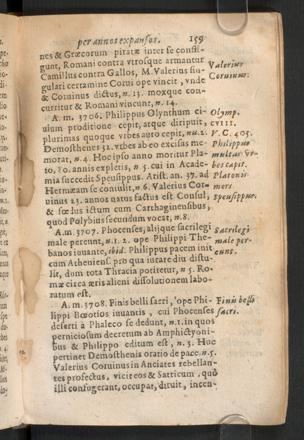 per annos expansos. 159
nes & Græcorum piratæ inter se confli-
gunt, Romani contra virosque armantur
Camillus contra Gallos, M. Valerius sin-
gulari certamine Corui ope vincit, vnde
& Coruinus dictus, n.13. moxque con-
curritur & Romani vincunt, n.14.
Valerius
Coruinus.
A. m. 3706. Philippus Olynthum ci-
uium proditione cepit, atque diripuit,
plurimas quoque vrbes auro cepit, nu.2.
Demosthenes 32. vrbes ab eo excisas me-
morat, n.4. Hoc ipso anno moritur Pla-
to, 80. annis expletis, n.5. cui in Acade-
mia succedit Speusippus. Arist. an. 37. ad
Hermeam se contulit, n.6. Valerius Cor-
uinus 23. annos natus factus est Consul,
& fœdus ictum cum Carthaginensibus,
quod Polybius secundum vocat, n.8.
Olymp.
cviii.
V. C. 405.
Philippus
multas vr-
bes capit.
Platonis
mors
speusippus.
A.m. 3707. Phocenses, aliique sacrilegi
male pereunt, n.1. 2. ope Philippi The-
banos iuuante, ibid. Philippus pacem init
cum Atheniens. pro qua iurare diu distu-
lit, dom tota Thracia potiretur, n.5. Ro-
mæ circa æris alieni dissolutionem labo-
ratum est.
Sacrilegi
male per-
eunt.
A.m. 3708. Finis belli sacri, ope Phi-
lippi Bœotios iuuantis, cui Phocenses
deserti à Phaleco se dedunt, n.1. in quos
perniciosum decretum ab Amphictyoni-
bus & Philippo editum est, n.3. Huc
pertinet Demosthenis oratio de pace. n.5.
Valerius Coruinus in Anciates rebellan-
tes profectus, vicit eos & Satricum, quò
illi confugerant, occupat, diruit, incen-
Finis belli
sacri.